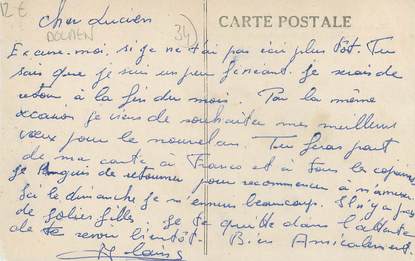 12 €
DOUREN
34)
Cher Lucien
CARTE POSTALE
Excuse-moi, si je ne t'ai pas écris plus tôt. Tu
sais que je suis un peu feneant. Je serais de
retour à la fin du mois. Par la même
occasion je viens de souhaiter mes meilleurs
vœux pour le nouvel an. Tu feras part
de ma carte à Franco et à tous les copains
Je languis de retourner pour recommencer à s'amuser.
Ici le dimanche je m'ennui beaucoup. Il n'y a pas
de jolies filles. Je te quitte dans l'attente
de te revoir bientôt. Bien Amicalement.